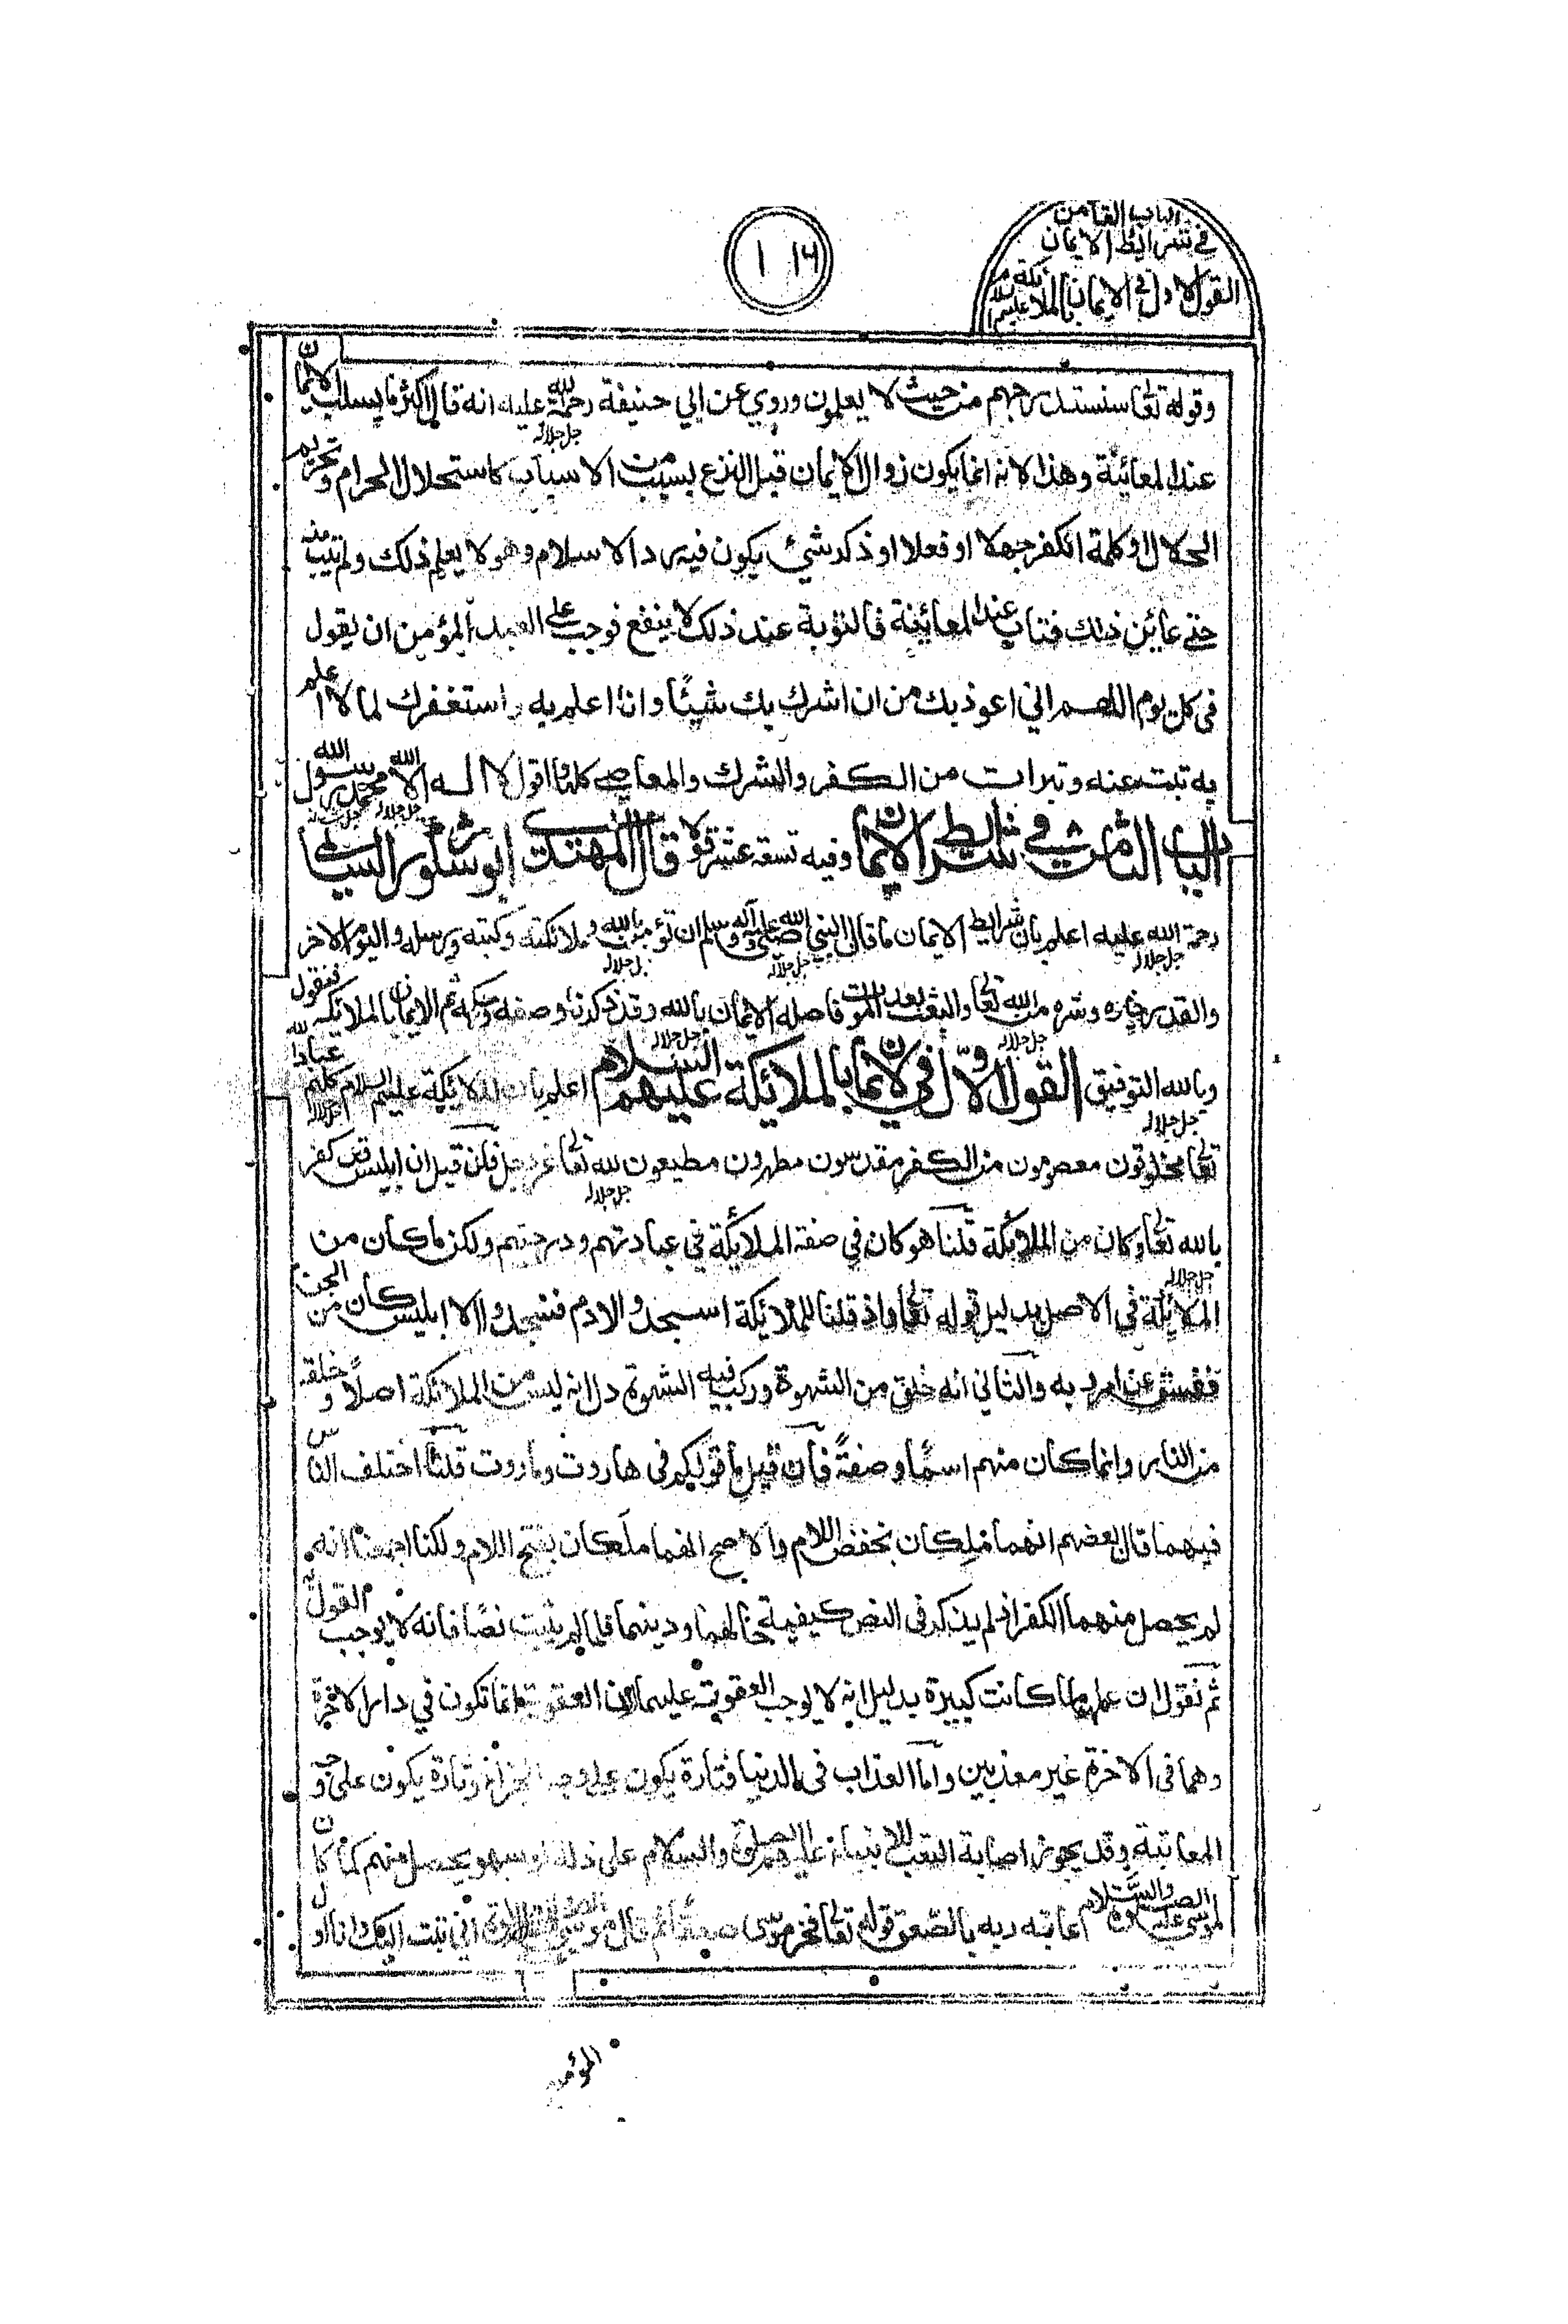 الباب الثامن
في شرائط الايمان
القول الاول في الايمان بالملائكة عليهم
١١٦
وقوله تعا سنستدرجهم من حيث لا يعلمون وروي عن ابي حنيفة رحمة الله عليه انه قال اكثر ما يسلب الايمان
جل جلاله
عند المعائنة وهذا لانه انما يكون زوال الايمان قبل النزع بسبب من الاسباب كاستحلال الحرام وتحريم
الحلال او كلمة الكفر جهلا او فعلا او ذكر شيئ يكون فيه رد الاسلام وهو لا يعلم ذلك ولم يتب منه
حتى عائن ذلك فتاب عند المعائنة فالتوبة عند ذلك لا ينفع فوجب على العبد المؤمن ان يقول
في كل يوم اللهم اني اعوذ بك من ان اشرك بك شيئًا وانا اعلم به واستغفرك لما لا اعلم
به تبت عنه وتبرات من الكفر والشرك والمعاصي كلها واقول لا اله الا الله محمد رسول الله
جل جلاله
الباب الثامن في شرائط الايمان وفيه تسعة عشر قولا قال المهتدى ابو شكور السالمي
رحمة الله عليه اعلم بان شرائط الايمان ما قال النبي صلى الله عليه وآله وسلم ان تؤمن بالله وملائكته وكتبه ورسله واليوم الاخر
جل جلاله جل جلاله جل جلاله
والقدر خيره وشره من الله تعا والبعث بعد الموت فاصله الايمان بالله وقد ذكرنا وصفه وحكمه ثم الايمان بالملائكة فنقول
جل جلاله جل جلاله
وبالله التوفيق القول الاوّل في الايمان بالملائكة عليهم السلام اعلم بان الملائكة عليهم السلام كلهم عباد الله
جل جلاله جل جلاله
تعا مخلوقون معصومون من الكفر مقدسون مطهرون مطيعون لله تعا عز وجل فان قيل ان ابليس قد كفر
جل جلاله
بالله تعا وكان من الملائكة قلنا هو كان في صفة الملائكة في عبادتهم ودرجتهم ولكن ما كان من
جل جلاله
الملائكة في الاصل بدليل قوله تعا واذ قلنا للملائكة اسجدوا لادم فسجدوا الا ابليس كان من الجن
ففسق عن امر ربه والثاني انه خلق من الشهوة وركب فيه الشهوة دل انه ليس من الملائكة اصلًا وخلقه
من النار وانما كان منهم اسمًا وصفةً فان قيل ما قولكم في هاروت وماروت قلنا اختلف الناس
فيهما قال بعضهم انهما مَلِكان بخفض اللام والاصح انهما ملَكان بفتح اللام ولكنا اجمعنا انه
لم يحصل منهما الكفر اذ لم يذكر في النص كيفية حالهما ودينهما فلما لم يثبت نصًا فانه لا يوجب القول
ثم نقول ان عملهما ما كانت كبيرة بدليل انه لا يوجب العقوبة عليهما لان العقوبة انما تكون في دار الاخرة
وهما في الاخرة غير معذبين واما العذاب في الدنيا فتارة يكون على وجه الجزاء وتارة يكون على وجه
المعاتبة وقد يجوز اصابة التعب للانبياء عليهم الصلوة والسلام على ذلة او سهو يحصل منهم كما كان
لموسى عليه الصلوة والسلام عاتبه ربه بالصّعق قوله تعا فخر موسى صعقًا ثم قال موسى اني تبت اليك وانا اول
المؤمنين